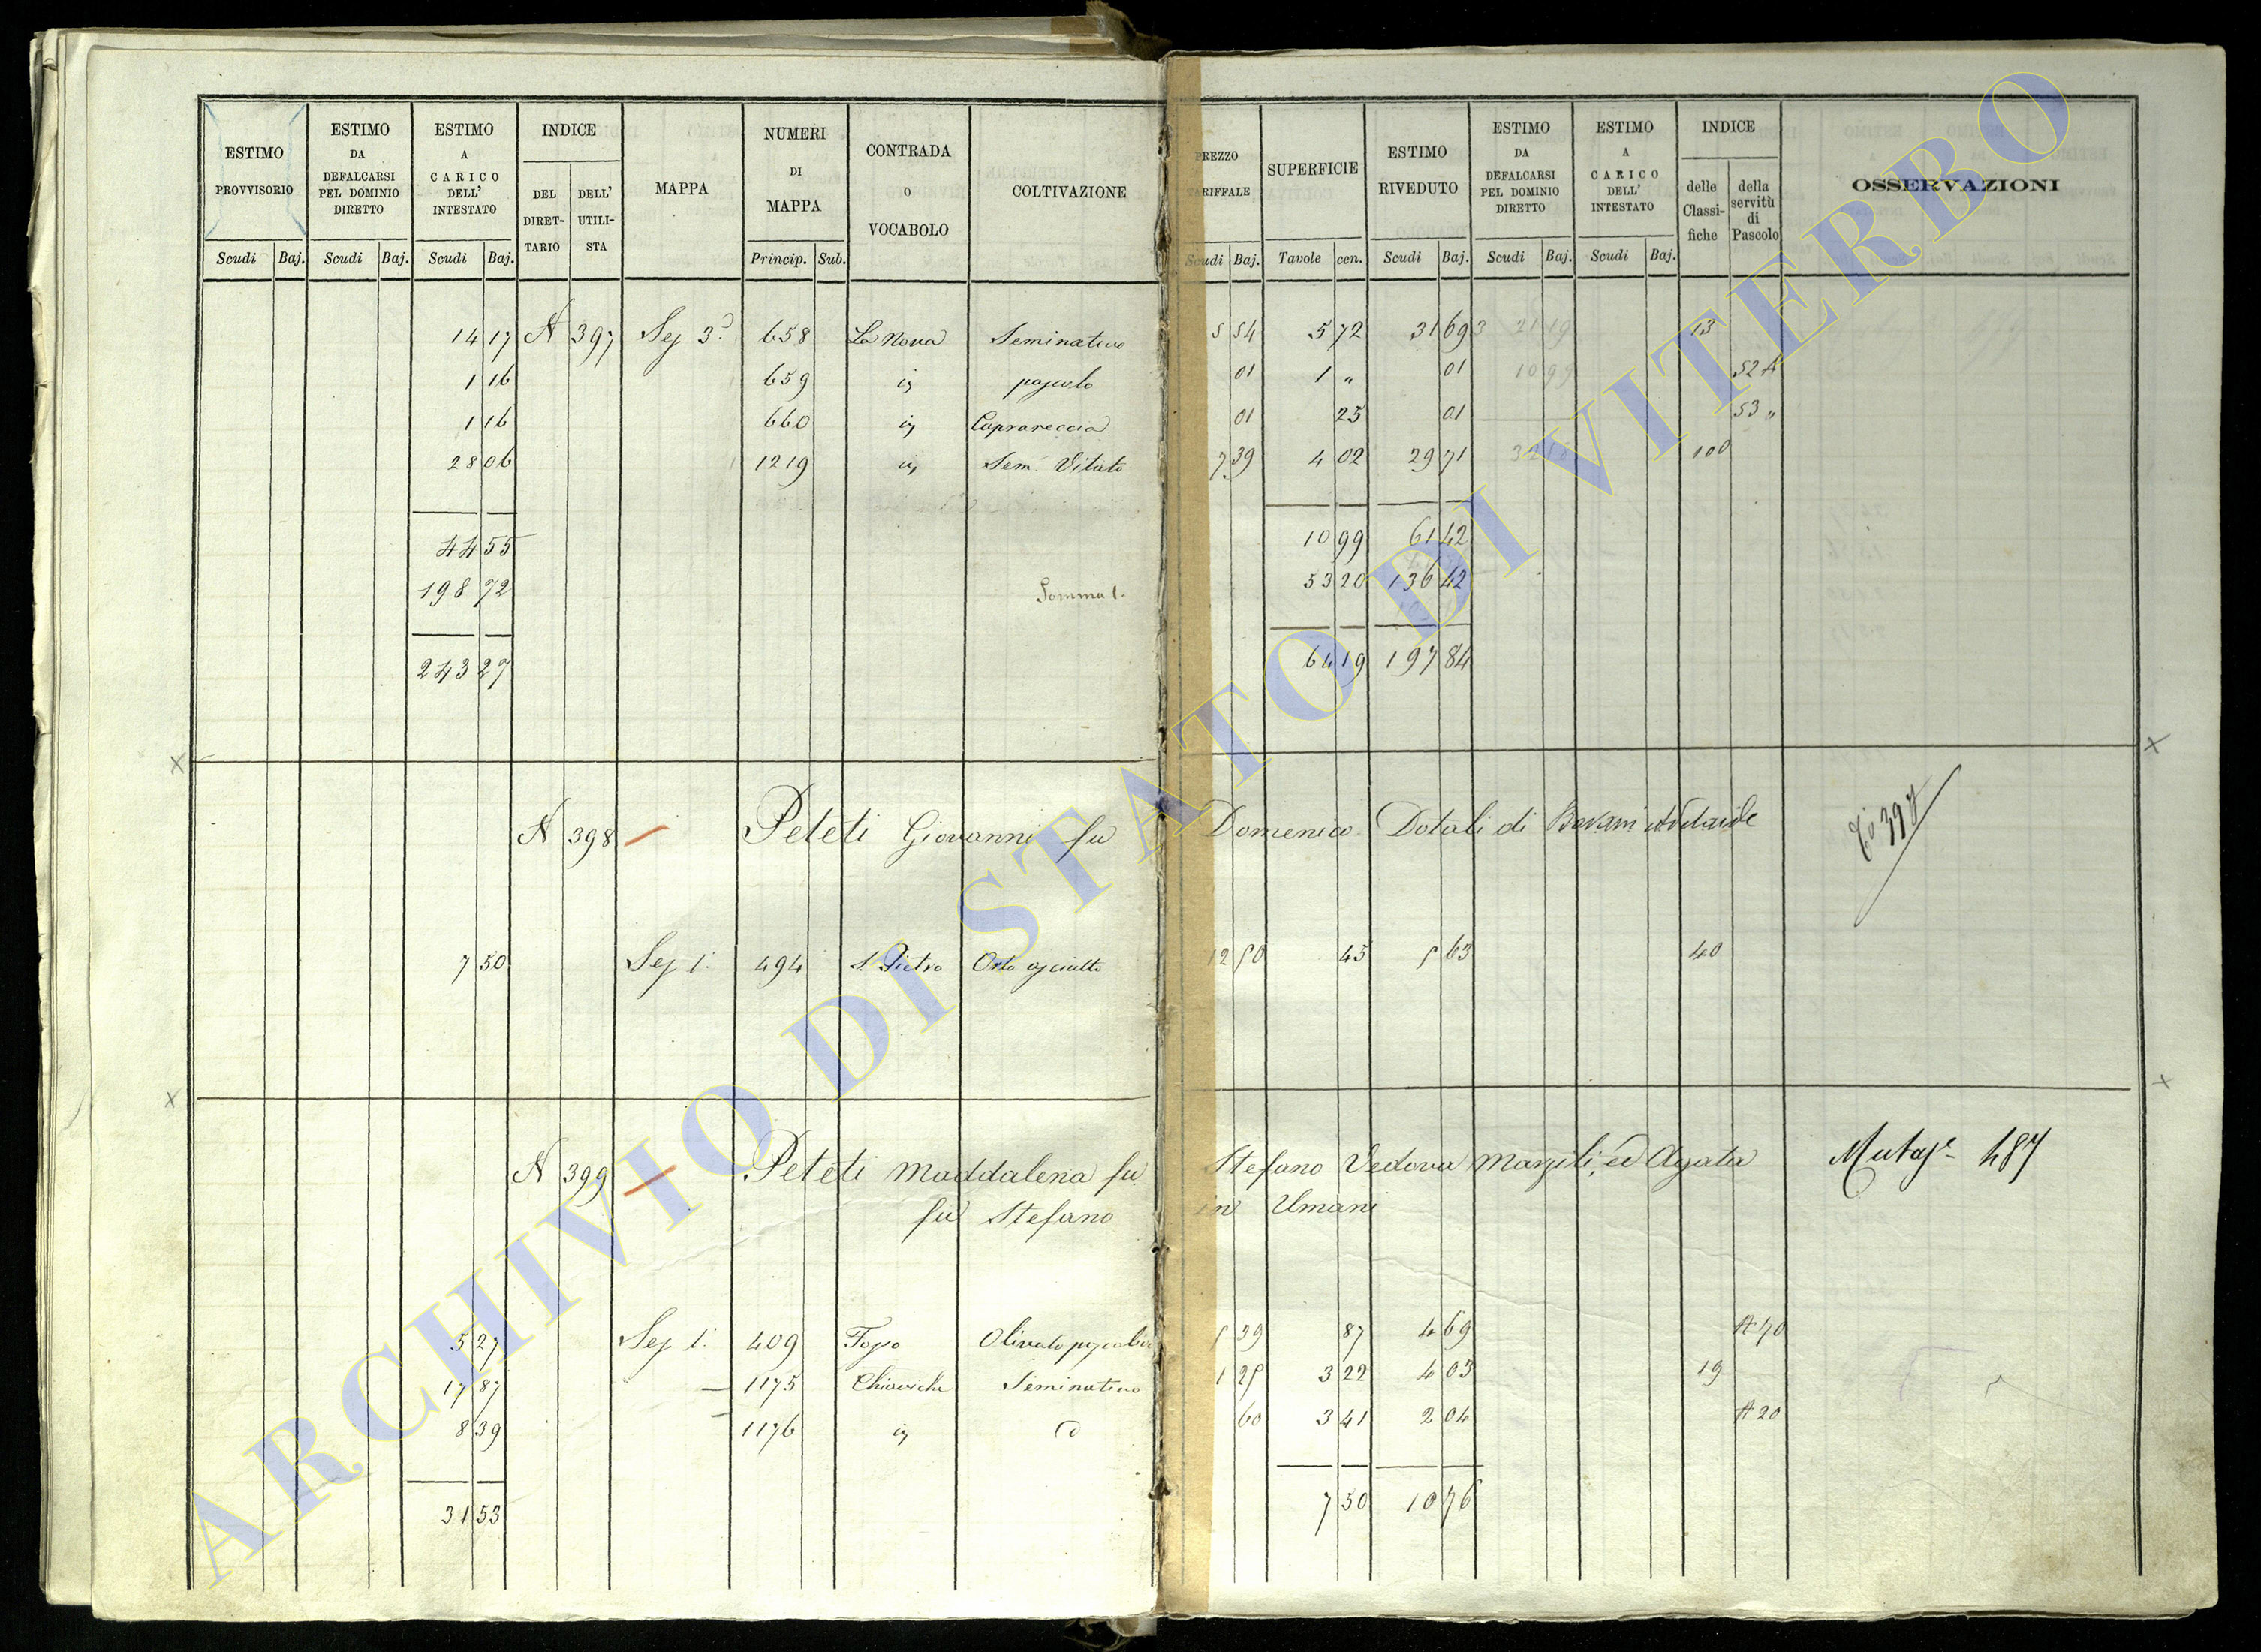 ESTIMO PROVVISORIO | ESTIMO DA DEFALCARSI PEL DOMINIO DIRETTO | ESTIMO A CARICO DELL' INTESTATO | INDICE DEL DIRETTARIO | DELL' UTILISTA | MAPPA | NUMERI DI MAPPA | CONTRADA O VOCABOLO | COLTIVAZIONE | PREZZO TARIFFALE | SUPERFICIE | ESTIMO RIVEDUTO | ESTIMO DA DEFALCARSI PEL DOMINIO DIRETTO | ESTIMO A CARICO DELL' INTESTATO | INDICE delle Classifiche | della servitù di Pascolo | OSSERVAZIONI
Scudi Baj. Scudi Baj. Scudi Baj. Princip. Sub. Scudi Baj. Tavole cen. Scudi Baj. Scudi Baj. Scudi Baj.
14 17 N 397 Sez 3ª 658 La Nova Seminativo 5 54 5 72 31 69 13
1 16 659 id pascolo 01 1 „ 01 52 A
1 16 660 id Caprareccia 01 25 01 53 „
28 06 1219 id Sem. Vitato 7 39 4 02 29 71 100
44 55 10 99 61 42
198 72 Somma 53 20 136 42
243 27 64 19 197 84
N 398 Peteti Giovanni fu Domenico Dotali di Adelaide 397
7 50 Sez 1ª 494 S. Pietro Orto asciutto 12 50 45 5 63 40
N 399 Peteti Maddalena fu Stefano Vedova ed Agata 487
fu Stefano in Umani
5 27 Sez 1ª 409 Olivato pascolivo 5 39 87 4 69 A 70
17 87 1175 Seminativo 1 25 3 22 4 03 19
8 39 1176 id 60 3 41 2 04 A 20
31 53 7 50 10 76
ARCHIVIO DI STATO DI VITERBO